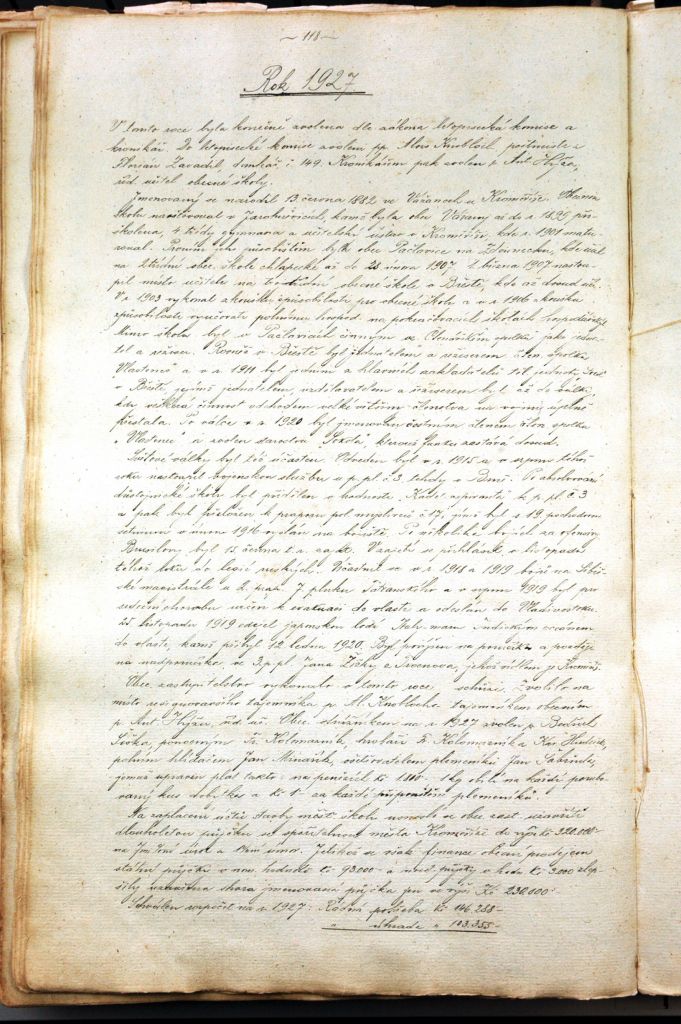 ~ 118 ~
Rok 1927
V tomto roce byla konečně zvolena dle zákona letopisecká komise a
kronikář. Do letopisecké komise zvoleni pp. Alois Knobloch, poštmistr a
Florian Zavadil, č. 149. Kronikářem pak zvolen p. Ant. Hýža,
říd. učitel obecné školy.
Jmenovaný se narodil 13. června 1882 ve Vážanech u Kroměříže. Obecnou
školu navštěvoval v Jarohněvicích, kamž byla obec Vážany až do r. 1895 při-
školena, 4 třídy gymnasia a učitelský ústav v Kroměříži, kde r. 1901 matu-
roval. Prvním jeho působištěm byla obec Pačlavice na Zdounecku, kde účil
na 2třídní obec. škole chlapecké až do 28 února 1907. 1. března 1907 nastou-
pil místo učitele na obecné škole v Břestě, kde až dosud učí.
V r. 1903 vykonal zkoušku způsobilosti pro obecné školy a v r. 1906 zkoušku
způsobilosti vyučovati polnímu hospod. na pokračovacích školách hospodářských.
Mimo školu byl v Pačlavicích činným ve Čtenářském spolku jako jedna-
tel a režisér. Rovněž v Břestě byl jednatelem a režisérem čten. spolku
"Vlastenec" a v r. 1911 byl jedním z hlavních zakladatelů těl. jednoty Sokol
v Břestě, jejímž jednatelem, vzdělavatelem a režisérem byl až do války,
kdy veškerá činnost odchodem velké většiny členstva na vojnu úplně
přestala. Po válce v r. 1920 byl jmenován čestným členem čten. spolku
"Vlastenec" a zvolen starostou "Sokola", kterouž funkci zastává dosud.
Světové války byl též účasten. Odveden byl v r. 1915 a v srpnu téhož
roku nastoupil vojenskou službu u p. pl. č. 3. tehdy v Brně. Po absolvování
důstojnické školy byl přidělen v hodnosti "Kadet aspiranta" k p. pl. č. 3
a pak byl přeložen k praporu pol. myslivců č. 17, s nímž byl s 19. pochodovou
setninou v únoru 1916 vyslán na bojiště. Po několika bojích za ofensivy
Brusilovy byl 15. června t. r. zajat. V zajetí se přihlásil v listopadu
téhož roku do legií ruských. Účastnil se v r. 1918 a 1919 bojů na Sibiř-
ské magistrále u 2. prap. 7. pluku Tatranského a v srpnu 1919 byl pro
srdeční chorobu určen k evakuaci do vlasti a odeslán do Vladivostoku.
25. listopadu 1919 odejel japonskou lodí Indickým oceánem
do vlasti, kamž přibyl 12. ledna 1920. Byl povýšen na poručíka a později
na nadporučíka ve 3. p. pl. Jana Žižky z Trocnova, jehož sídlem je Kroměříž.
Obec. zastupitelstvo vykonalo v tomto roce schůzí. Zvolilo na
místo resignovavšího tajemníka p. Al. Knoblocha tajemníkem obecním
p. Ant. Hýžu, říd. uč. Obec. strážníkem na r. 1927 zvolen p. Bedřich
Sívka, ponocným Fr. Kolomazník, hrobaři Fr. Kolomazník a Kar.
polním hlídačem Jan Minařík, ošetřovatelem plemeníků Jan Gabriel,
jemuž upraven plat takto: na penězích Kč 1800·- 1 kg obilí na každý
kus dobytka a Kč 1·- za každé připouštění plemeníků.
Na zaplacení účtů stavby měšť. školy usneslo se obec. zast. uzavříti
dlouholetou půjčku u spořitelny města Kroměříže do výše Kč 320.000·-
na úrok a úmor. Jelikož se však finance obecní prodejem
státní půjčky v nom. hodnotě Kč 93.000·- a půjčky v hod. Kč 3.000 zlep-
šily, uzavřena shora jmenovaná půjčka jen ve výši Kč 230.000·-
Schválen rozpočet na r. 1927: Řádná potřeba Kč 146.288·-
" úhrada " 103.355·-